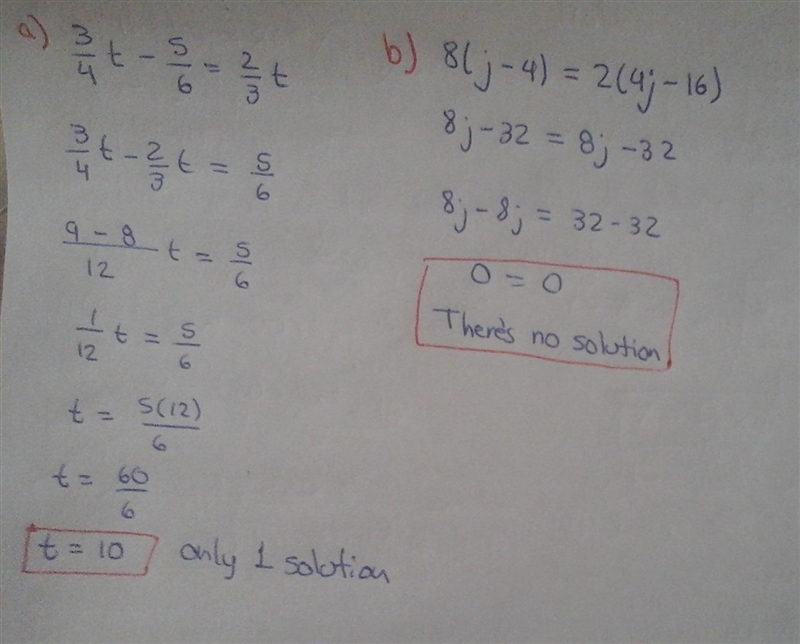 a) 3/4 t - 5/6 = 2/3 t
3/4 t - 2/3 t = 5/6
9 - 8/12 t = 5/6
1/12 t = 5/6
t = 5(12)/6
t = 60/6
t = 10 only 1 solution
b) 8(j - 4) = 2(4j - 16)
8j - 32 = 8j - 32
8j - 8j = 32 - 32
0 = 0
There's no solution